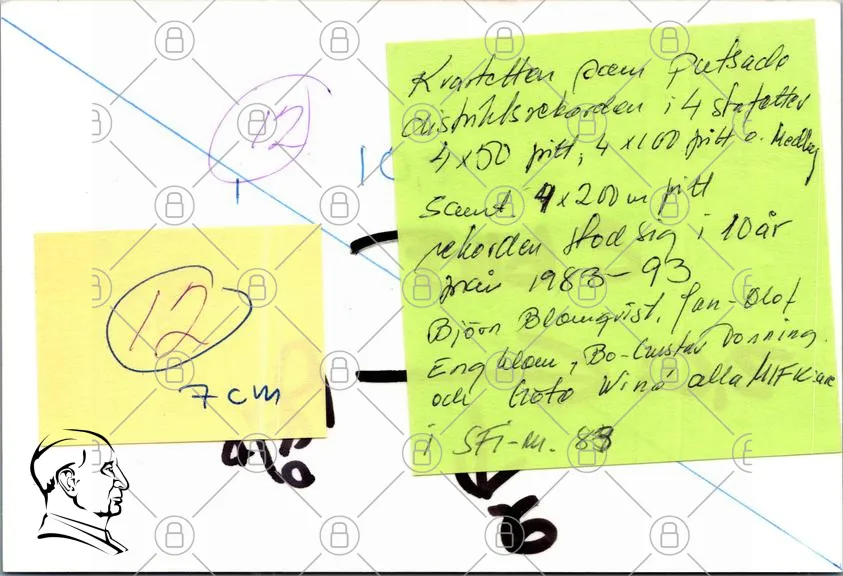 12
12
7 cm
Kvartetten som putsade
distriktsrekorden i 4 stafetter
4 x 50 fritt, 4 x 100 fritt o. Medley
Samt 4 x 200 m fritt
rekorden stod sig i 10 år
från 1983-93
Björn Blomqvist, Jan-Olof
Engblom, Bo-Gustav Donning
och Wind alla MIFK:are
i SFI-m. 83